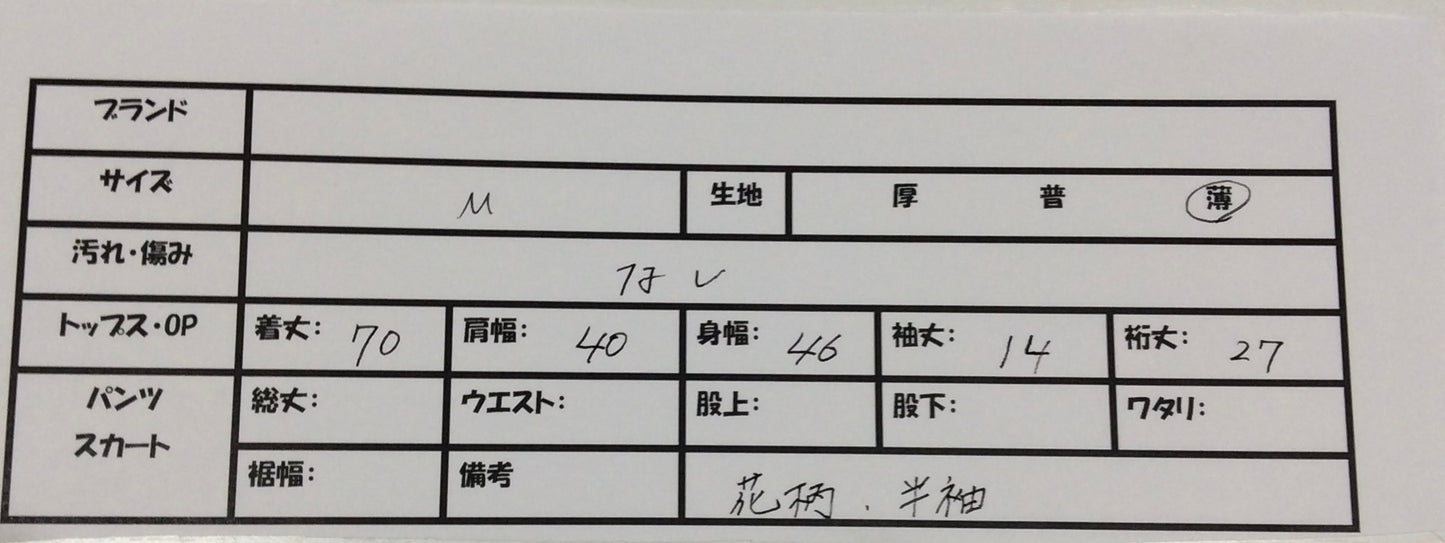 ブランド
サイズ M 生地 厚 普 薄
汚れ・傷み なし
トップス・OP 着丈: 70 肩幅: 40 身幅: 46 袖丈: 14 裄丈: 27
パンツ 総丈: ウエスト: 股上: 股下: ワタリ:
スカート
裾幅: 備考 花柄.半袖